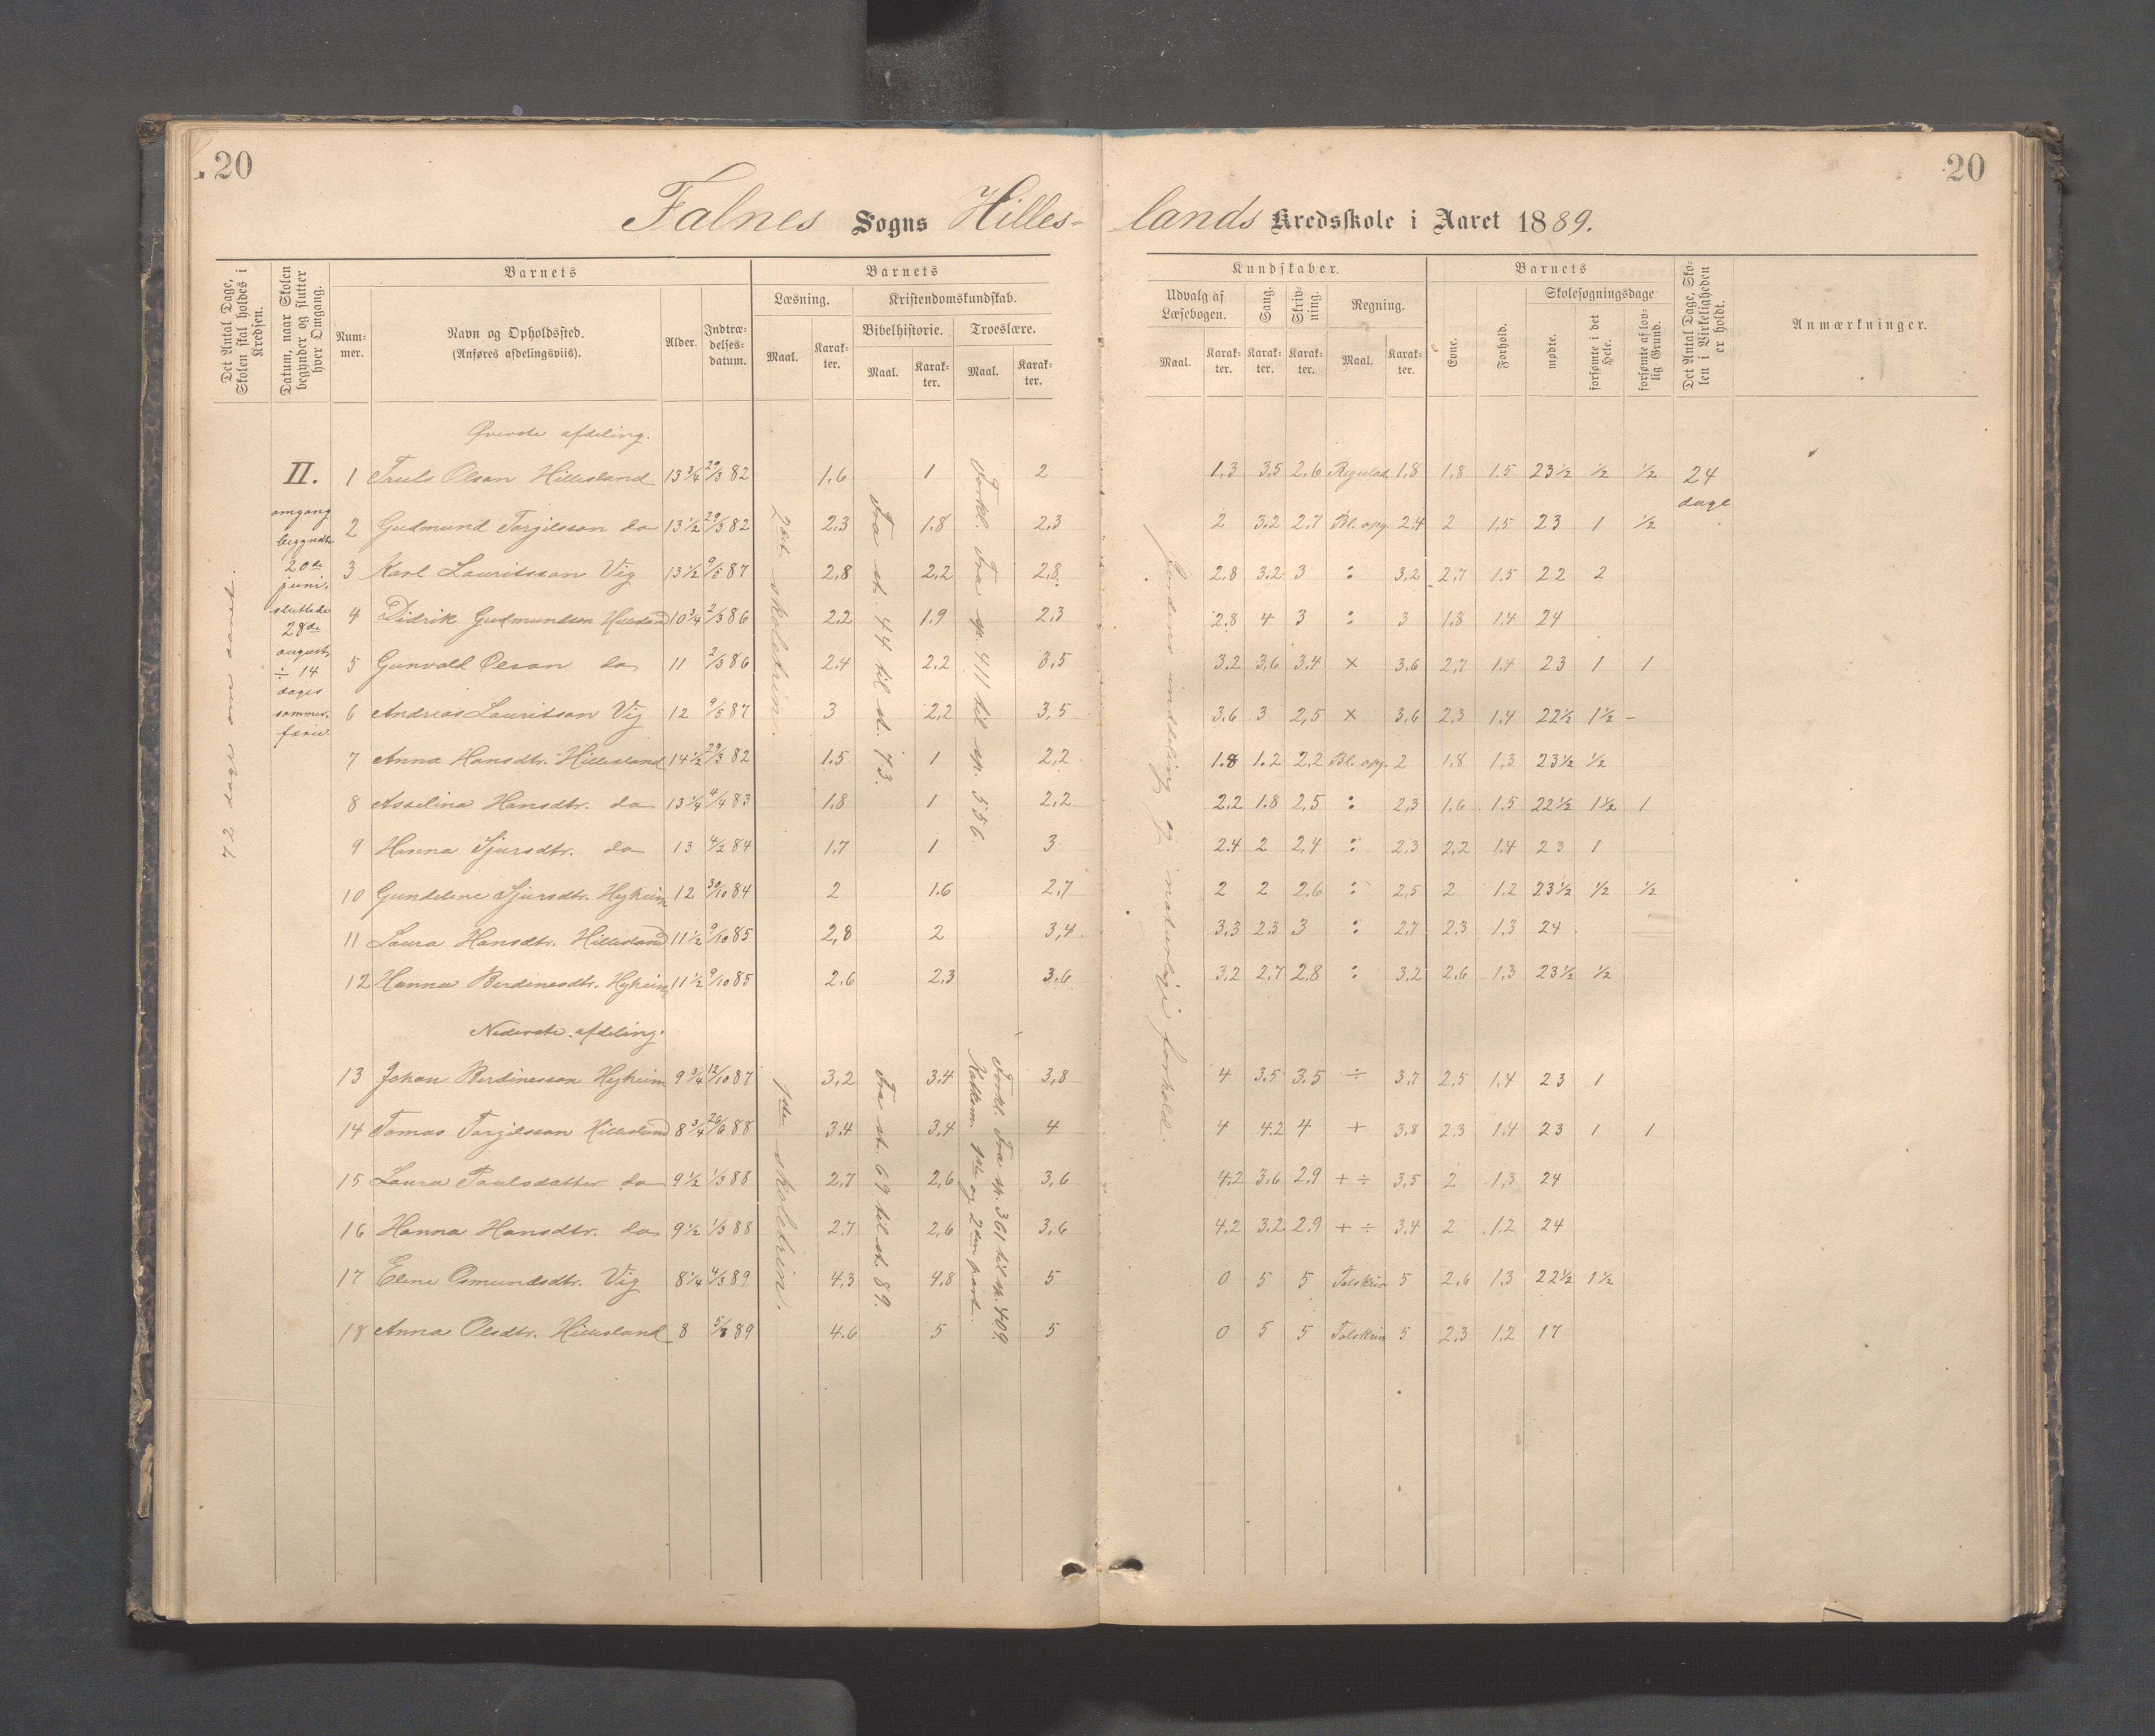 20
20
Falnes Sogns Hilles-
lands Kredsskole i Aaret 1889.
Det Antal Dage, Skolen skal holdes i Kredsen.
Datum, naar Skolen begynder og slutter hver Omgang.
Barnets
Nummer.
Navn og Opholdssted.
(Anføres afdelingsviis).
Alder.
Indtrædelsesdatum.
Barnets
Læsning.
Maal.
Karakter.
Kristendomskundskab.
Bibelhistorie.
Maal.
Karakter.
Troeslære.
Maal.
Karakter.
Kundskaber.
Udvalg af Læsebogen.
Maal.
Karakter.
Sang.
Karakter.
Skrivning.
Karakter.
Regning.
Maal.
Karakter.
Barnets
Evne.
Forhold.
Skolesøgningsdage
mødte.
forsømte i det Hele.
forsømte af lovlig Grund.
Det Antal Dage, Skolen i Virkeligheden er holdt.
Anmærkninger.
72 dage om aaret.
II.
omgang
begyndte
20de
juni,
sluttede
28de
august,
÷ 14
dages
sommer-
ferie.
2det skoletrin.
Fra st. 44 til st. 73.
Forkl. Fra sp. 411 til sp. 556.
Jordens inddeling og naturlige forhold.
24
dage
Øverste afdeling.
1 Truls Olsen Hillesland 13 3/4 29/3 82 1.6 1 2 1,3 3.5 2.6 Regulad. 1.8 1.8 1.5 23 1/2 1/2 1/2
2 Gudmund Torgilsson do 13 1/2 29/3 82 2,3 1.8 2,3 2 3.2 2.7 Bl. opg. 2.4 2 1.5 23 1 1/2
3 Karl Lauritsson Vig 13 1/2 9/5 87 2,8 2,2 2,8 2.8 3.2 3 : 3,2 2,7 1.5 22 2
4 Didrik Gudmundsen Hillesland 10 3/4 2/3 86 2.2 1.9 2.3 2.8 4 3 : 3 1.8 1.4 24
5 Gunvald Olson do 11 2/3 86 2.4 2.2 3,5 3.2 3,6 3.4 × 3.6 2,7 1.4 23 1 1
6 Andreas Lauritson Vig 12 9/5 87 3 2,2 3,5 3.6 3 2,5 × 3,6 2,3 1.4 22 1/2 1 1/2 -
7 Anna Hansdtr. Hillesland 14 1/2 29/3 82 1.5 1 2,2 1.8 1.2 2,2 Bl. opg. 2 1.8 1,3 23 1/2 1/2
8 Asselina Hansdtr. do 13 1/4 4/4 83 1.8 1 2,2 2.2 1.8 2,5 : 2,3 1.6 1.5 22 1/2 1 1/2 1
9 Hanna Sjursdtr. do 13 4/2 84 1.7 1 3 2.4 2 2,4 : 2.3 2,2 1.4 23 1
10 Gundeline Sjursdtr. Hyheim 12 30/10 84 2 1.6 2,7 2 2 2,6 : 2,5 2 1.2 23 1/2 1/2 1/2
11 Laura Hansdtr. Hillesland 11 1/2 9/10 85 2,8 2 3,4 3,3 2.3 3 : 2,7 2,3 1,3 24
12 Hanna Berdinesdtr. Hyheim 11 1/2 9/10 85 2.6 2,3 3,6 3,2 2,7 2,8 : 3,2 2,6 1,3 23 1/2 1/2
Nederste afdeling.
1ste skoletrin.
Fra st. 69 til st. 89.
Forkl. Fra sp. 361 til sp. 409.
Katekism. 1ste og 2den part.
13 Johan Berdinesson Hyheim 9 3/4 12/10 87 3,2 3.4 3,8 4 3.5 3.5 ÷ 3.7 2,5 1,4 23 1
14 Tomas Torgilsson Hillesland 8 3/4 26/6 88 3.4 3,4 4 4 4.2 4 + 3,8 2,3 1.4 23 1 1
15 Laura Paulsdatter do 9 1/2 1/3 88 2,7 2,6 3,6 4.2 3,6 2,9 + ÷ 3,5 2 1,3 24
16 Hanna Hansdtr. do 9 1/2 1/3 88 2.7 2,6 3,6 4.2 3.2 2.9 + ÷ 3.4 2 1.2 24
17 Eline Osmundsdtr. Vig 8 1/4 4/3 89 4,3 4.8 5 0 5 5 Talskriv 5 2,6 1,3 22 1/2 1 1/2
18 Anna Olsdtr. Hillesland 8 89 4.6 5 5 0 5 5 Talskriv 5 2,3 1.2 17